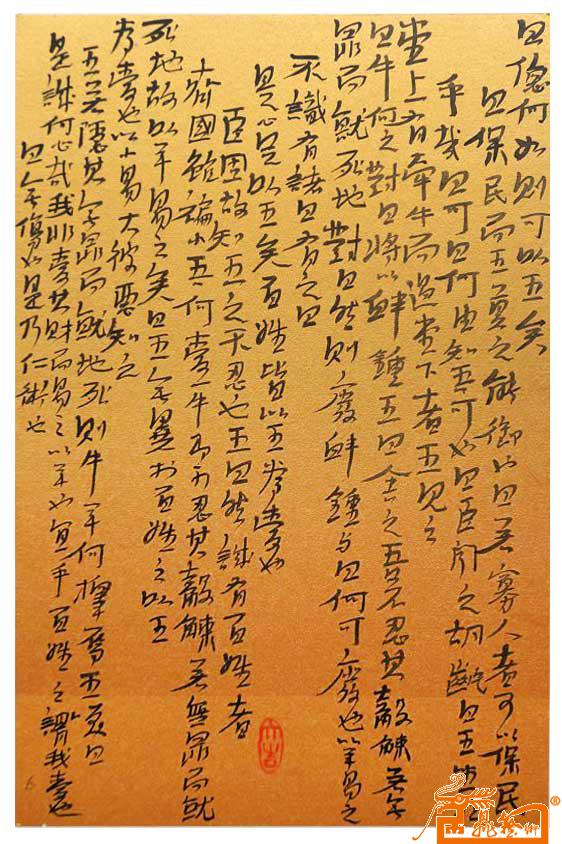 曰德何如則可以王矣
曰保民而王莫之能御也曰若寡人者可以保民
乎哉曰可曰何由知吾可也曰臣聞之胡齕曰王坐於
堂上有牽牛而過堂下者王見之
曰牛何之對曰將以衅鐘王曰舍之吾不忍其觳觫若無
罪而就死地對曰然則廢衅鐘與曰何可廢也以羊易之
不識有諸曰有之曰
是心足以王矣百姓皆以王為愛也
臣固故知王之不忍也王曰然誠有百姓者
齊國雖褊小吾何愛一牛即不忍其觳觫若無罪而就
死地故以羊易之矣曰王無異於百姓之以王
為愛也以小易大彼惡知之
王若隱其無罪而就地死則牛羊何擇焉王笑曰
是誠何心哉我非愛其財而易之以羊也宜乎百姓之謂我愛也
曰無傷也是乃仁術也